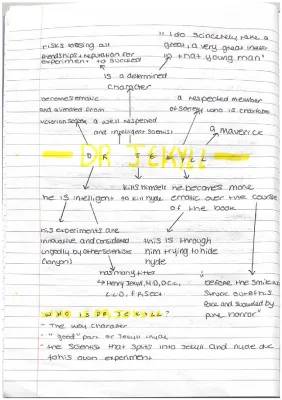 risks losing all
friendships + reputation for
experiment to succeed
"I do sincerely take a
great, a very great interest
in that young man"
is a determined
character
becomes erratic
and alienated from
victorian society
a respected member
of society who is charitable
a well respected
and intelligent scientist
a maverick
DR JEKYLL
he is intelligent
kills himself
to kill hyde
he becomes more
erratic over the course
of the book
his experiments are
innovative and considered
ungodly by other scientists
(lanyon)
this is through
him trying to hide
hyde
has many titles
↳ Henry Jekyll, M.D, D.C.L,
L.L.D, F.R.S etc
before the smile was
struck out of his
face and succeeded by
pure horror"
WHO IS DR JEKYLL?
- The main character
- "good" part of Jekyll Hyde
- the scientist that splits into Jekyll and Hyde due
to his own experiment